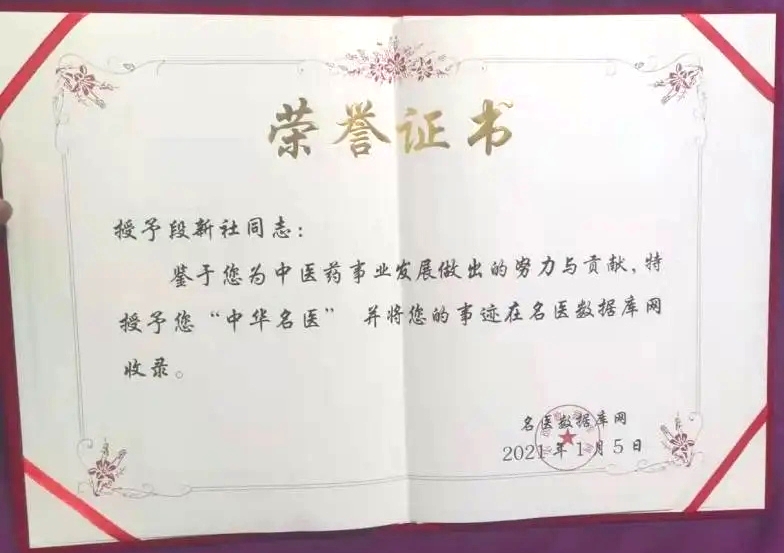 荣誉证书
授予段新社同志：
鉴于您为中医药事业发展做出的努力与贡献，特
授予您“中华名医” 并将您的事迹在名医数据库网
收录。
名医数据库网
2021年1月5日